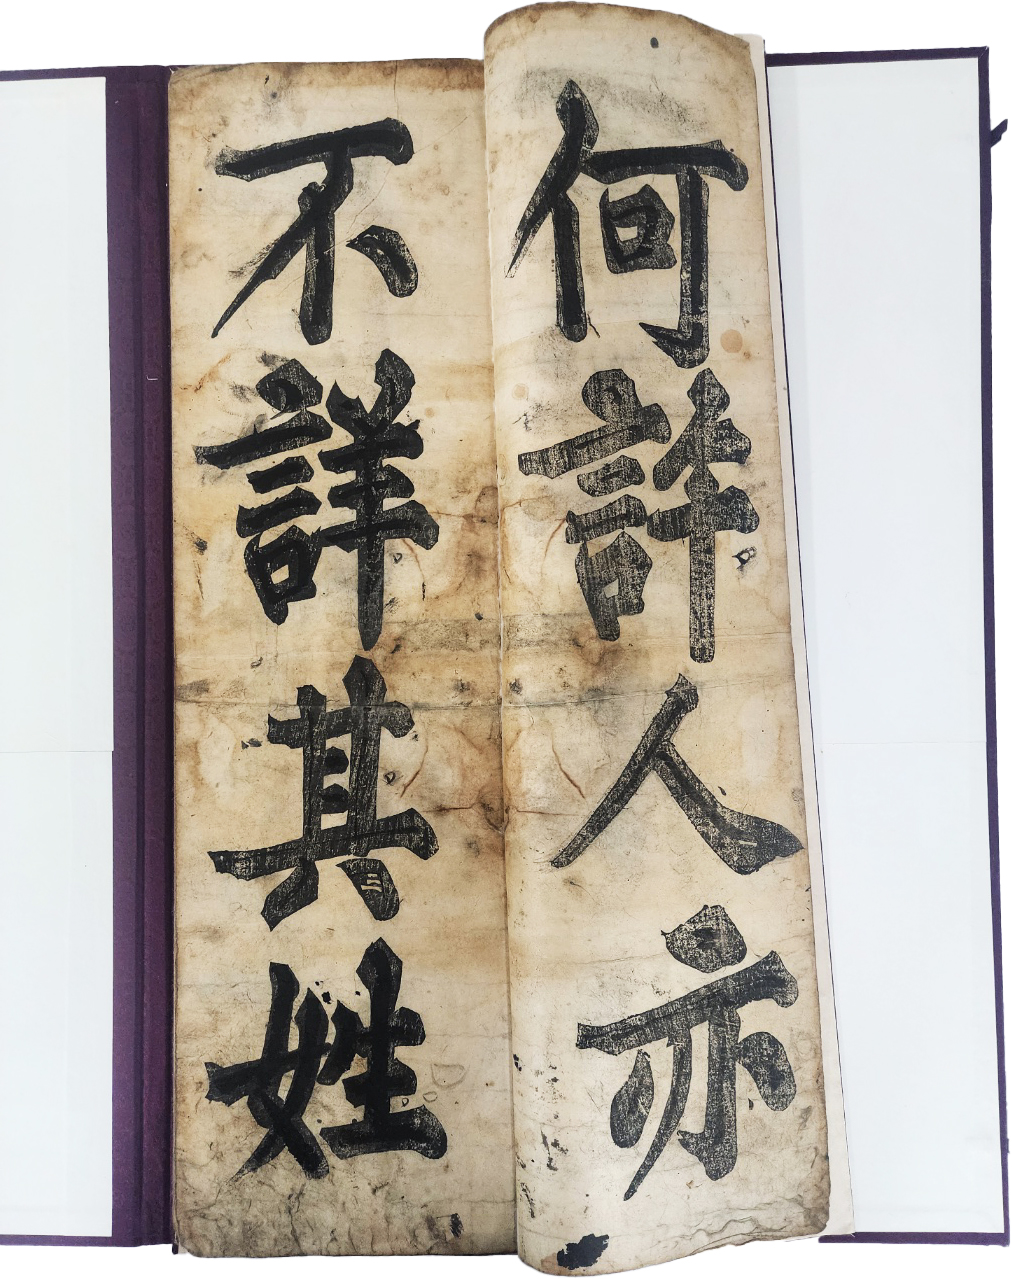 何許人亦
不詳其姓